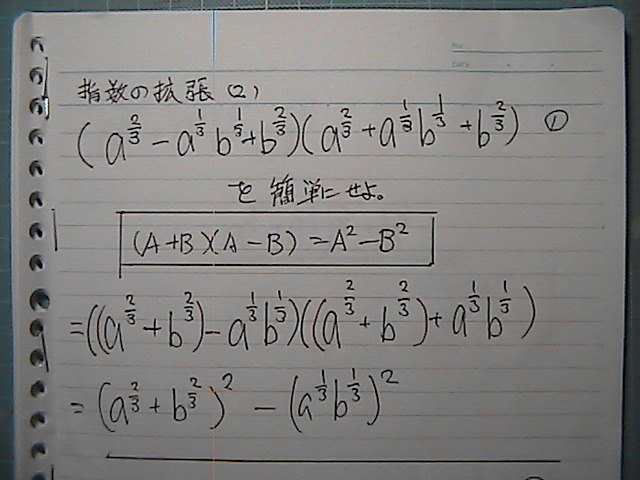 No.
DATE
指数の拡張(2)
(a^{2/3} - a^{1/3} b^{1/3} + b^{2/3})(a^{2/3} + a^{1/3} b^{1/3} + b^{2/3}) ①
を簡単にせよ。
(A+B)(A-B) = A^2 - B^2
= ((a^{2/3} + b^{2/3}) - a^{1/3} b^{1/3})((a^{2/3} + b^{2/3}) + a^{1/3} b^{1/3})
= (a^{2/3} + b^{2/3})^2 - (a^{1/3} b^{1/3})^2